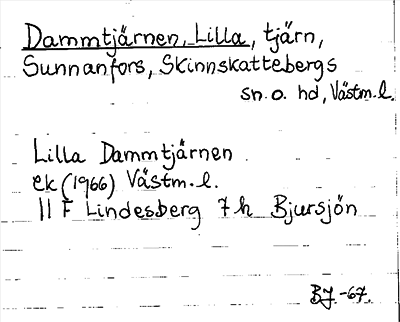 Dammtjärnen, Lilla, tjärn,
Sunnanfors, Skinnskattebergs
sn. o. hd, Västm. l.
Lilla Dammtjärnen
ek (1966) Västm. l.
11 F Lindesberg 7 h Bjursjön
BJ -67.